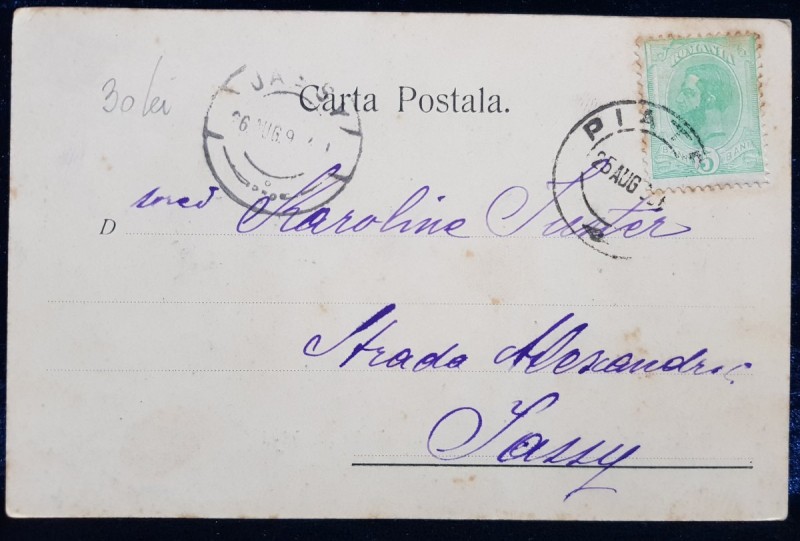 30 lei
JASSY
26 AUG 9
Carta Postala.
PIAT
25 AUG
ROMANIA
5 BANI
D
Karoline
Strada Alexandri
Jassy